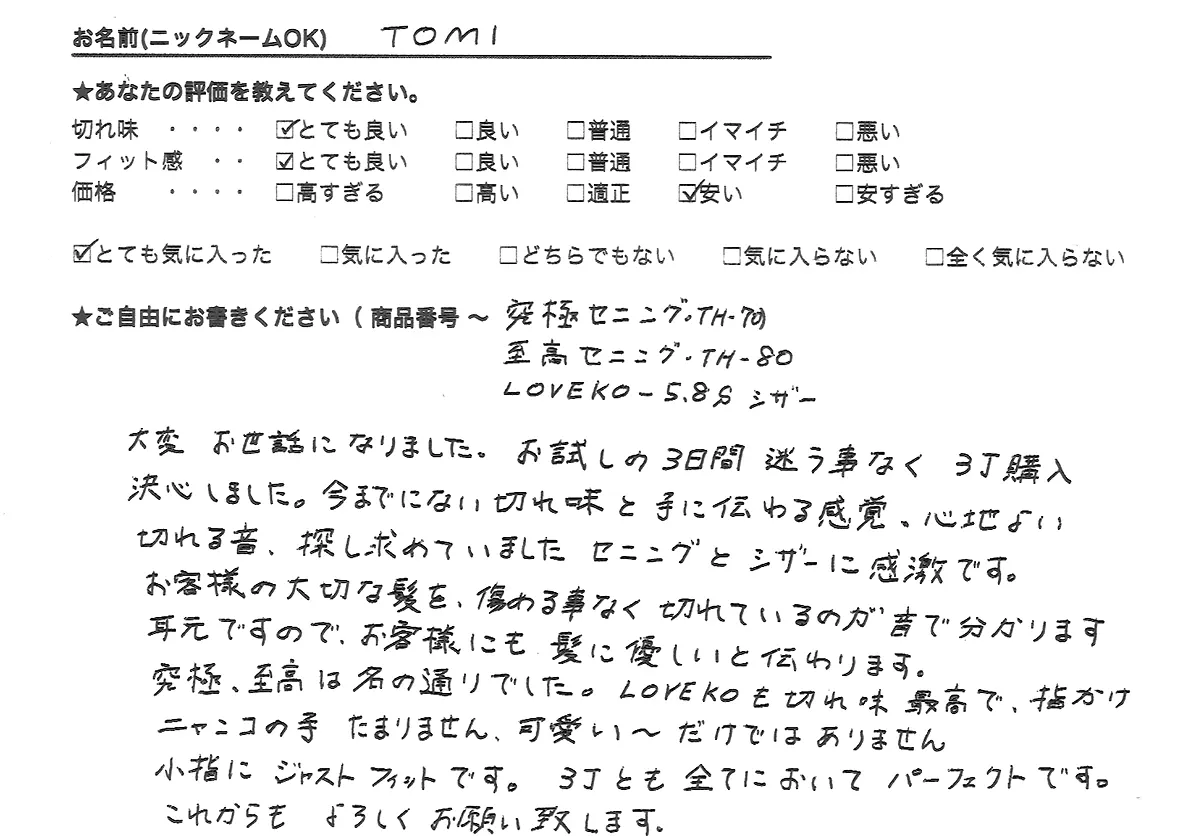 お名前(ニックネームOK) TOMI
★あなたの評価を教えてください。
切れ味 ・・・・ ☑とても良い □良い □普通 □イマイチ □悪い
フィット感 ・・ ☑とても良い □良い □普通 □イマイチ □悪い
価格 ・・・・ □高すぎる □高い □適正 ☑安い □安すぎる
☑とても気に入った □気に入った □どちらでもない □気に入らない □全く気に入らない
★ご自由にお書きください（商品番号〜 究極セニング・TH-70)
至高セニング・TH-80
LOVEKO-5.8S シザー
大変 お世話になりました。お試しの3日間 迷う事なく 3丁購入
決心しました。今までにない切れ味と手に伝わる感覚、心地よい
切れる音、探し求めていました セニングとシザーに感激です。
お客様の大切な髪を、傷める事なく切れているのが音で分かります
耳元ですので、お客様にも髪に優しいと伝わります。
究極、至高は名の通りでした。LOVEKOも切れ味 最高で、指かけ
ニャンコの手 たまりません、可愛い〜だけではありません
小指に ジャストフィットです。3丁とも全てにおいて パーフェクトです。
これからも よろしくお願い致します。